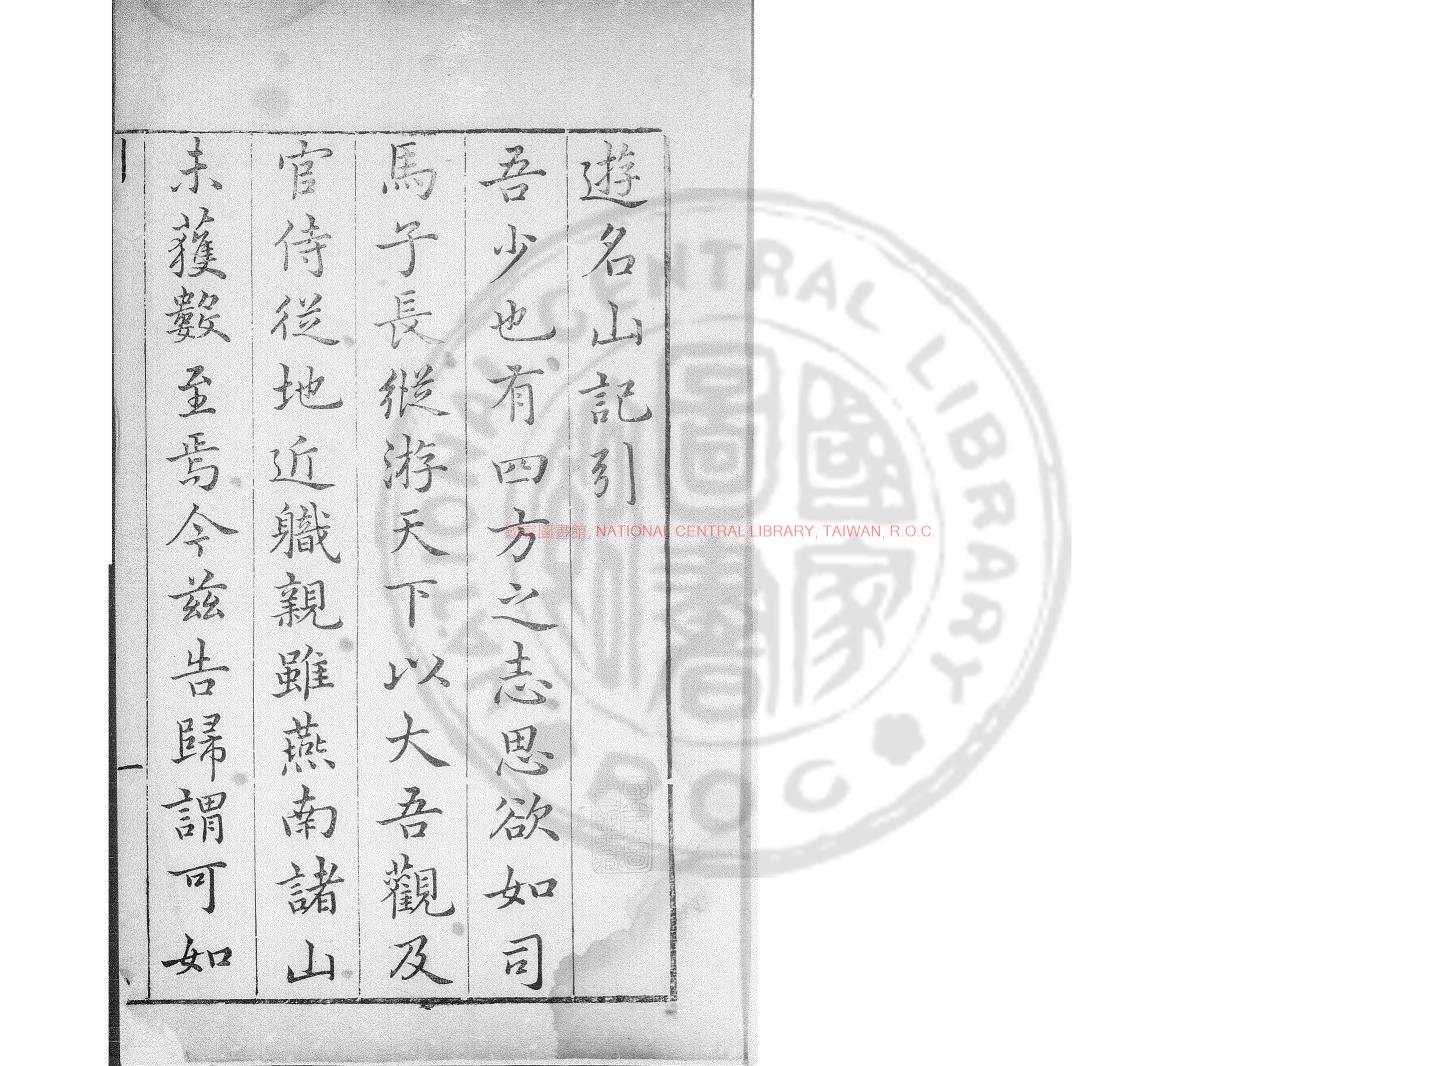 遊名山記引
吾少也有四方之志思欲如司
馬子長縱游天下以大吾觀及
官侍從地近職親雖燕南諸山
未獲數至焉今茲告歸謂可如
國家圖書館, NATIONAL CENTRAL LIBRARY, TAIWAN, R.O.C.
NATIONAL CENTRAL LIBRARY
R.O.C.
國家圖書